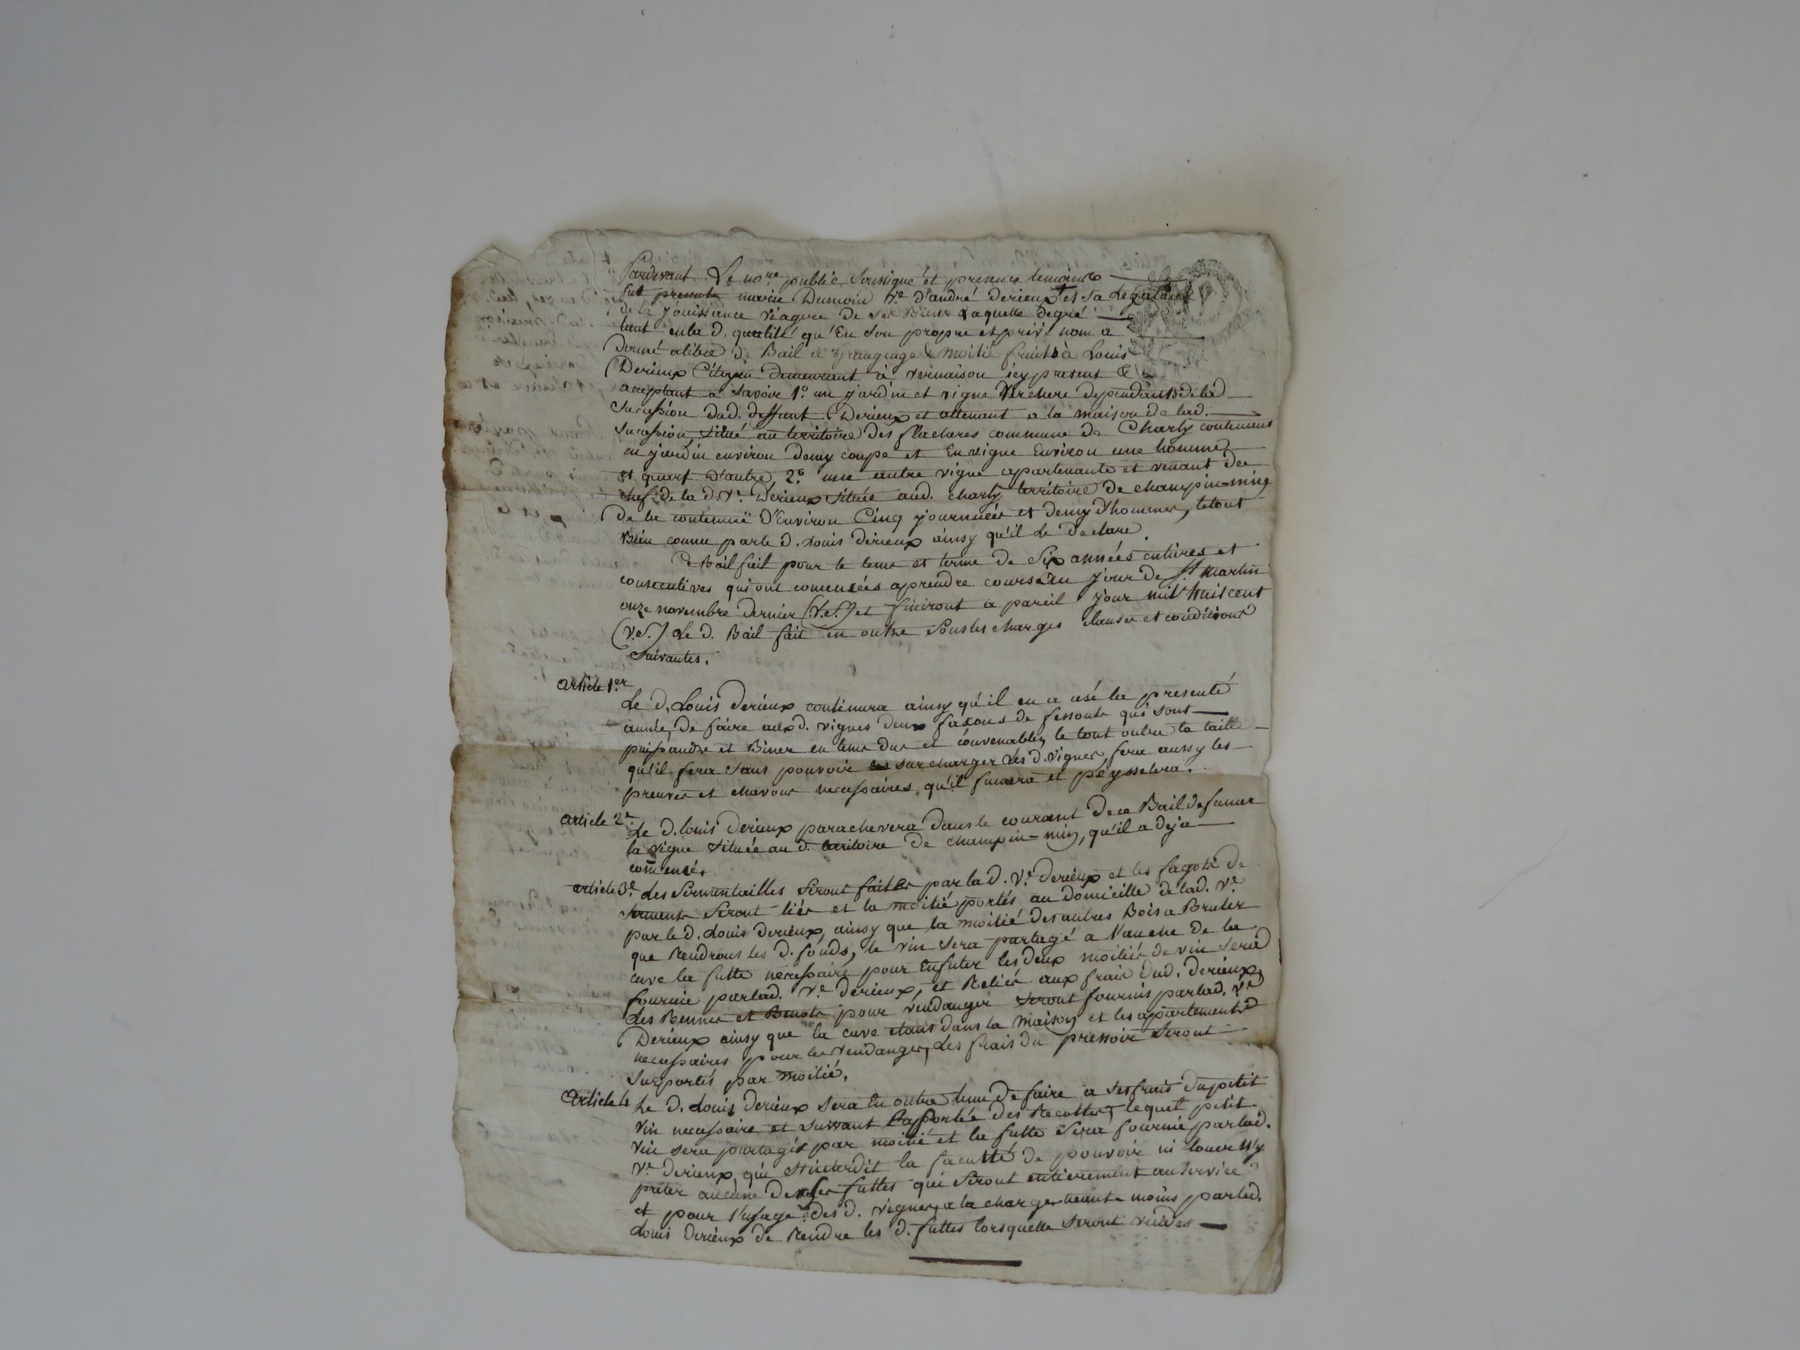 Pardevant Le no.re public soussigné et presence temoins
fut presente marie Dumoin V.e d'andré derieux et sa Legataire
de la jouissance viagere de ses Biens Laquelle degré
tant en la d. qualité qu'En son propre et privé nom a
donné a titre de Bail a grangeage & moitié fruits à Louis
Derieux Citoyen demeurant à vernaison icy present &
acceptant a Savoir 1.o un jardin et vigne Verchere dependants de lad
succession dud. deffunt Derieux et attenant a la maison de lad.
succession, situé au territoire des flacheres commune de Charly contenant
en jardin environ demy coupe et En vigne Environ une hommée
et quart d'autre, 2.o une autre vigne apartenante et venant de
chef de la d. V.e Derieux située aud. charly territoire de champin-miny
de la contenue D'Environ Cinq journées et demy d'hommes, le tout
Bien connu par le d. Louis derieux ainsy qu'il Le declare.
Le Bail fait pour le tems et terme de Six années entieres et
consecutives qui ont comencées a prendre cours au jour de S.t Martin
onze novembre dernier (V.S.) et finiront a pareil jour mil huit cent
(V.S.) Le d. Bail fait en outre Sous les charges clauses et conditions
suivantes.
article 1.er
Le d. Louis derieux continuera ainsy qu'il en a usé la presente
année, de faire aux d. vignes deux façons de fessoule qui sont
puissandre et Biner en tems dus et convenables, le tout outre la taille
qu'il fera sans pouvoir surcharger les d. vignes, fera aussy les
preuves et chavons necessaires, qu'il fumera et peysselera.
article 2.e
Le d. louis derieux parachevera dans le courant de ce Bail de fumer
la vigne située au d. territoire de champin-miny, qu'il a deja
comencé.
article 3.e Les Sermentailles seront faites par la d. V.e derieux et les fagots de
serments seront liés et la moitié portés au domicille de lad. V.e
par le d. Louis derieux, ainsy que la moitié des autres Bois a Bruler
que Rendrons les d. fonds, le vin sera partagé a l'anche de la
cuve la futte necessaire pour Enfuter les deux moitiés de vin sera
fournie par lad. V.e derieux, et Reliée aux frais dud. derieux,
Les Bennes et Benots pour vendanger seront fournis par lad. V.e
Derieux ainsy que la cuve étans dans la maison et les apartements
necessaires pour les vendanges, Les frais du pressoir seront
suportés par moitié.
Article 4 Le d. Louis derieux sera En outre tenu de faire a ses frais du petit
vin necessaire et suivant La portée des Recoltes, lequel petit
vin sera partagé par moitié et la futte sera fournie par lad.
V.e derieux, qui s'interdit la faculté de pouvoir ni louer N'y
preter aucune des futtes qui seront entierement au service
et pour l'usage des d. vignes, a la charge neant-moins par led.
Louis derieux de Rendre les d. futtes lorsquelle seront vuides